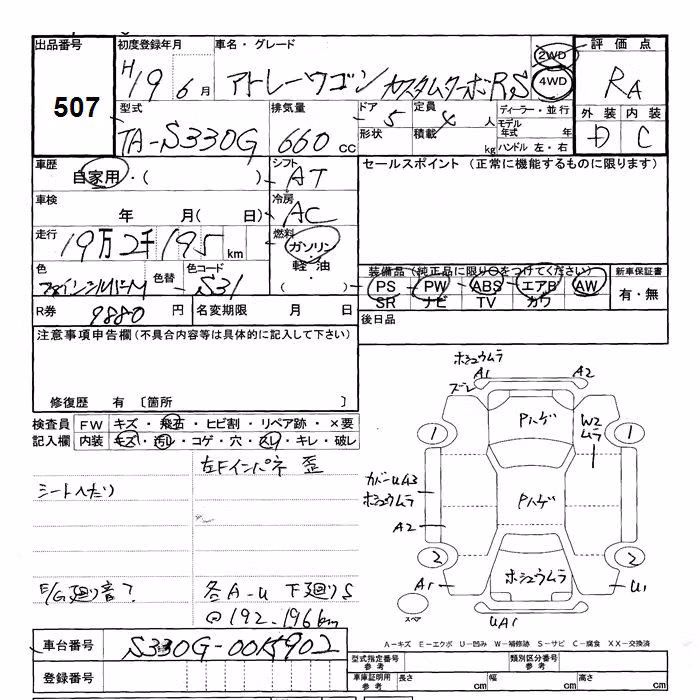 出品番号 初度登録年月 車名・グレード 2WD 評価点
507 H19 6月 アトレーワゴン カスタムターボRS 4WD RA
型式 排気量 ドア 定員 ディーラー・並行 外装 内装
TA-S330G 660cc 5 4人 モデル年式 年 D C
形状 積載 kg ハンドル 左・右
車歴 シフト セールスポイント (正常に機能するものに限ります)
自家用・( ) AT
車検 冷房
年 月( 日) AC
走行 燃料
19万2千195km ガソリン
色 色替 色コード 軽油・ 装備品(純正品に限り○をつけてください) 新車保証書
S31 ( ) PS PW ABS エアB AW 有・無
SR ナビ TV カワ
R券 9880円 名変期限 月 日 後日品
注意事項申告欄(不具合内容等は具体的に記入して下さい)
修復歴 有〔箇所 〕
検査員 FW キズ・飛石・ヒビ割・リペア跡・×要
記入欄 内装 キズ・汚レ・コゲ・穴・スレ・キレ・破レ
左Fインパネ 歪
シートヘたり
E/G廻り音?
各A-U 下廻りS
@192,196km
ホシュウムラ
A1 A2
ズレ
Pハゲ
W2
ムラ
1 1
カバーUA3
ホシュウムラ
Pハゲ
A2
2 2
ホシュウムラ
A1 U1
スペア
UA1
A-キズ E-エクボ U-凹み W-補修跡 S-サビ C-腐食 XX-交換済
車台番号 S330G-0015902
登録番号
型式指定番号 参考 類別区分番号 参考
車庫証明用 参考 長さ cm 幅 cm 高さ cm